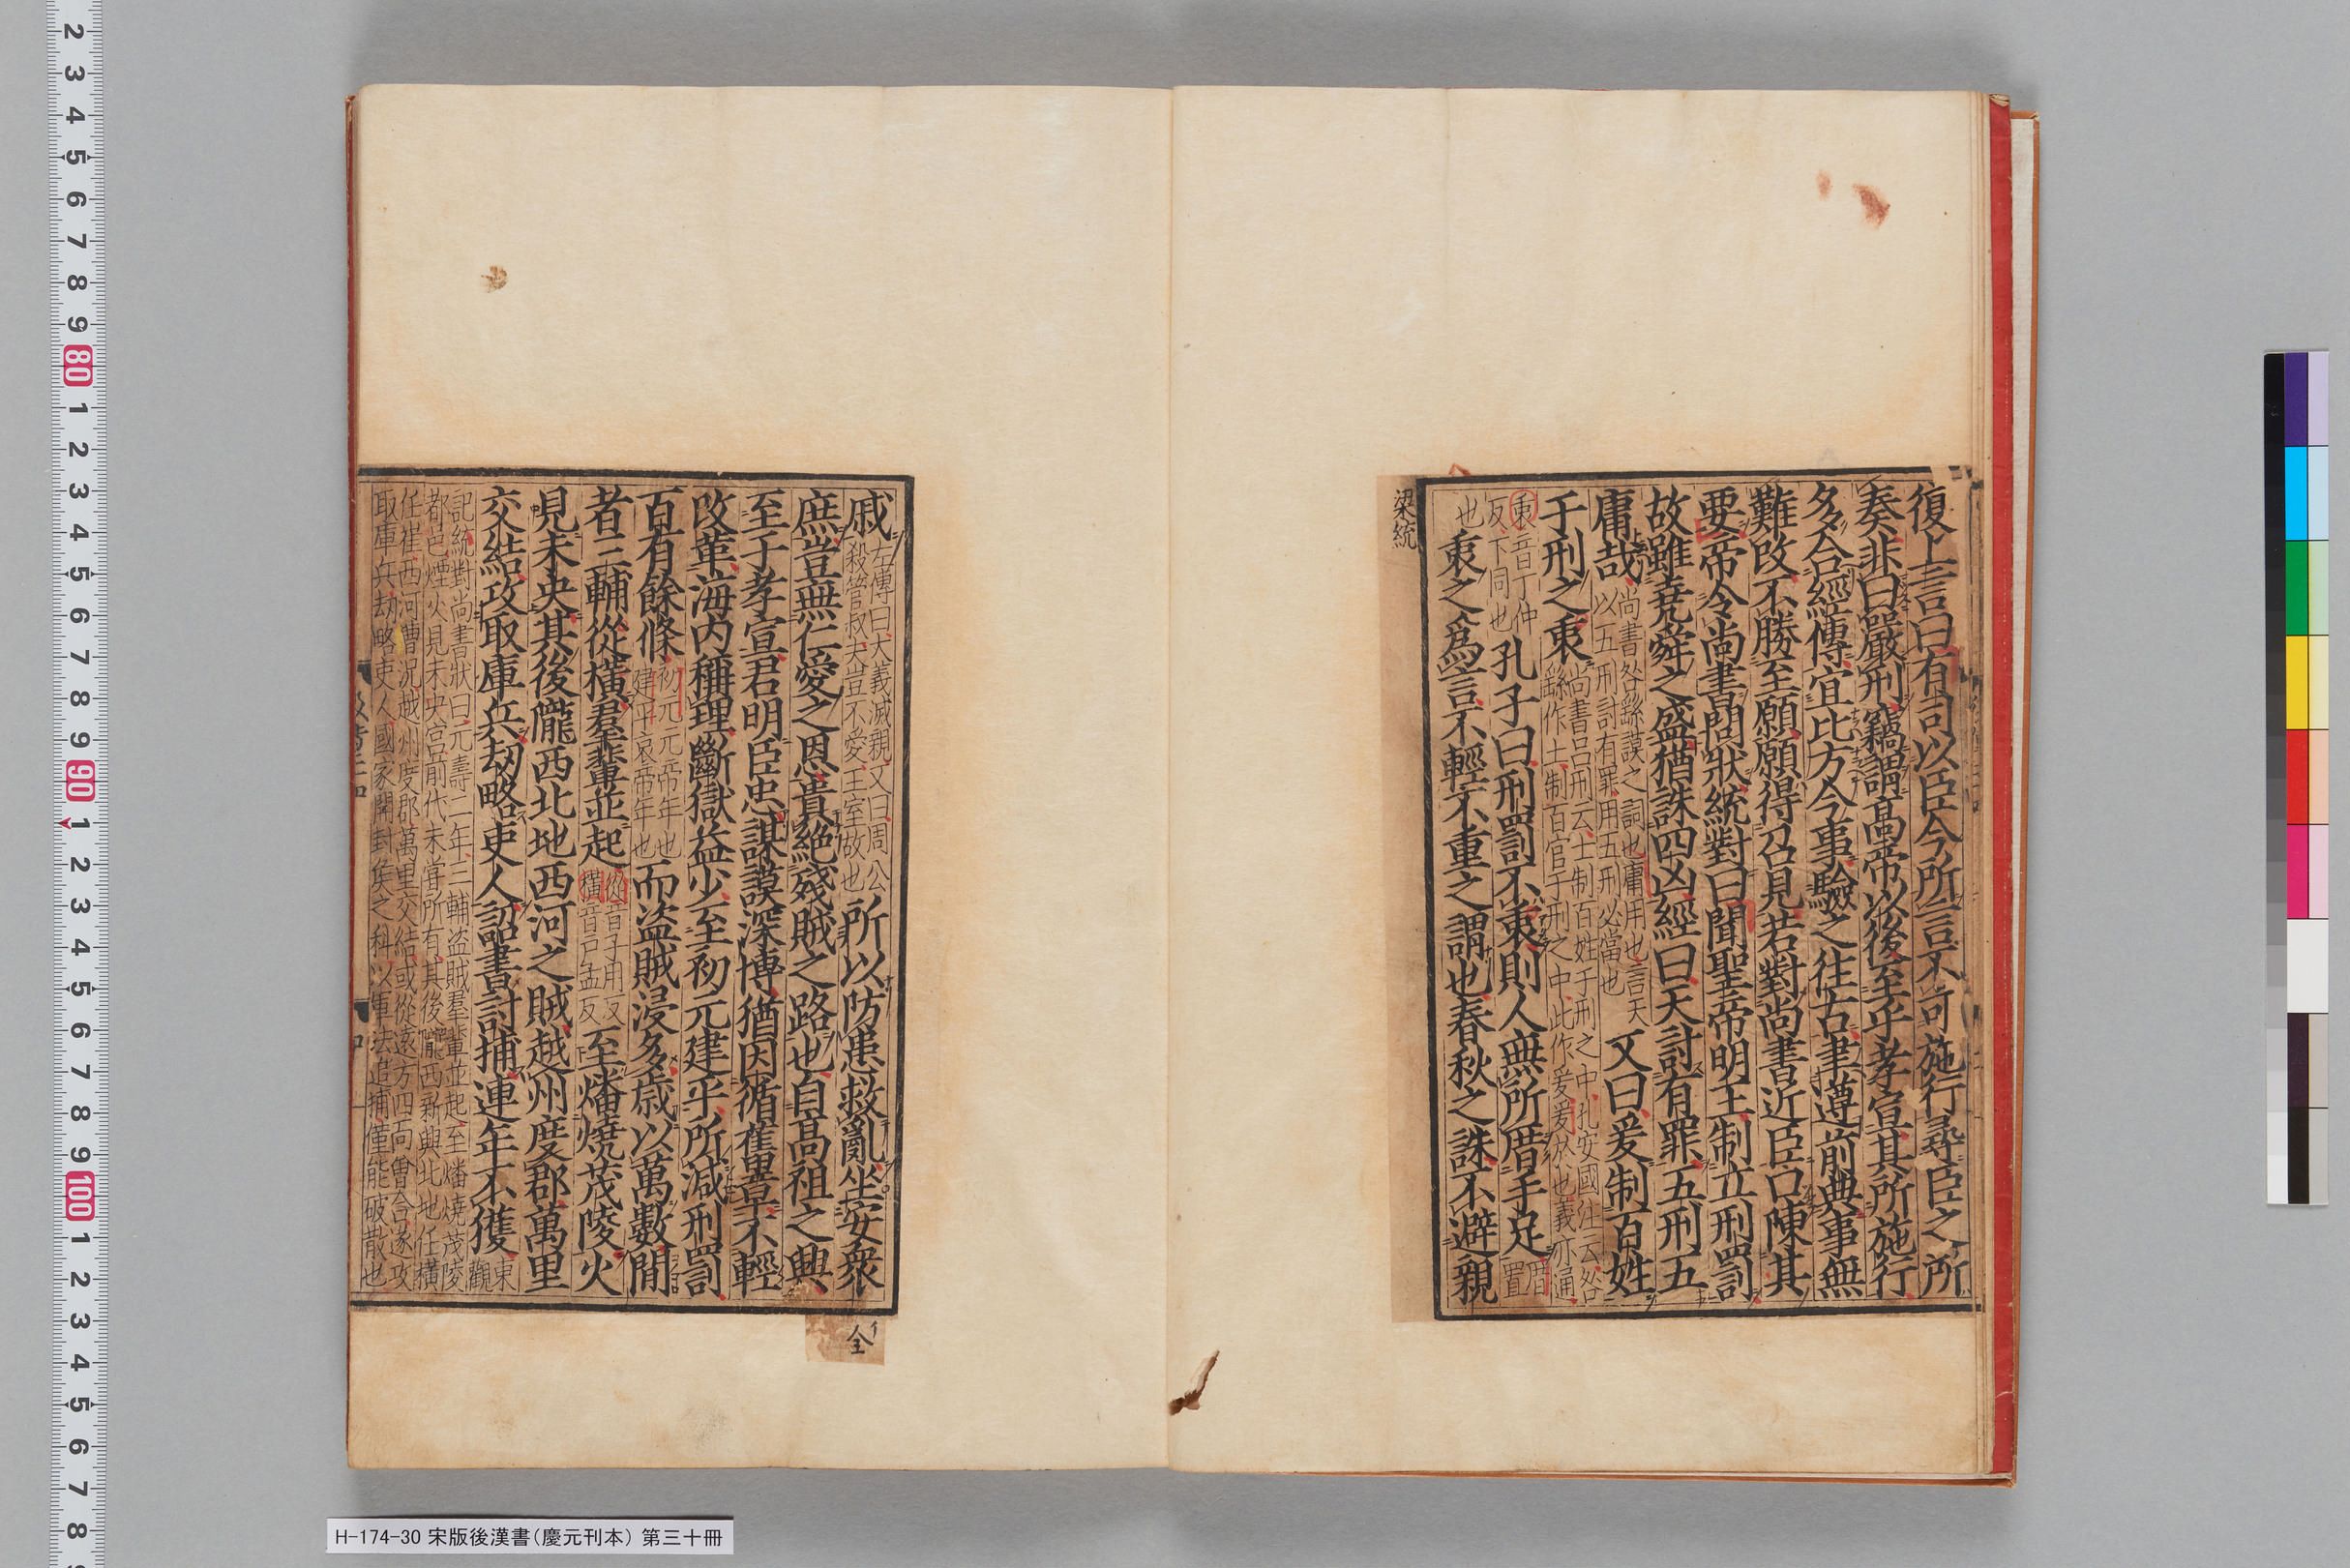 復上言曰有司以臣今所言不可施行尋臣之所
奏非曰嚴刑竊謂高帝以後至乎孝宣其所施行
多合經傳宜比方今事驗之往古聿遵前典事無
難改不勝至願願得召見若對尚書近臣口陳其
要帝令尚書問狀統對曰聞聖帝明王制立刑罰
故雖堯舜之盛猶誅四凶經曰天討有罪五刑五
庸哉尚書咎繇謨之詞也庸用也言天以五刑討有罪用五刑必當也又曰爰制百姓
于刑之衷尚書呂刑云士制百姓于刑之中孔安國注云咎繇作士制百官于刑之中此作爰爰於也義亦通
衷音丁仲反下同也孔子曰刑罰不衷則人無所厝手足厝置
也衷之爲言不輕不重之謂也春秋之誅不避親
梁統
戚左傳曰大義滅親又曰周公殺管叔夫豈不愛王室故也所以防患救亂坐安衆
庶豈無仁愛之恩貴絶殘賊之路也自高祖之興
至于孝宣君明臣忠謀謨深博猶因循舊章不輕
改革海内稱理斷獄益少至初元建平所減刑罰
百有餘條初元元帝年也建平哀帝年也而盜賊浸多歳以萬數間
者三輔從橫羣輩並起從音子用反橫音戸孟反至燔燒茂陵火
見未央其後隴西北地西河之賊越州度郡萬里
交結攻取庫兵劫略吏人詔書討捕連年不獲東觀
記統對尚書狀曰元壽二年三輔盜賊羣輩並起至燔燒茂陵
都邑煙火見未央宮前代未嘗所有其後隴西新興北地任橫
任崔西河漕況越州度郡萬里交結或從遠方四面會合遂攻
取庫兵劫略吏人國家開封侯之科以軍法追捕僅能破散也
イ全
H-174-30 宋版後漢書(慶元刊本) 第三十冊